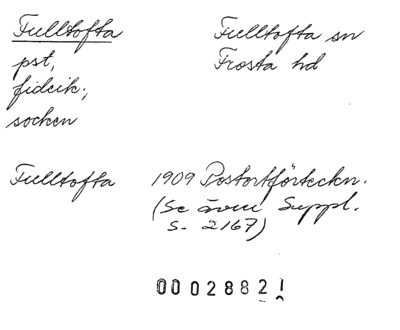 Fulltofta Fulltofta sn
pst, Frosta hd
fideik.,
socken
Fulltofta 1909 Postortförteckn.
(Se även Suppl.
s. 2167)
00028821